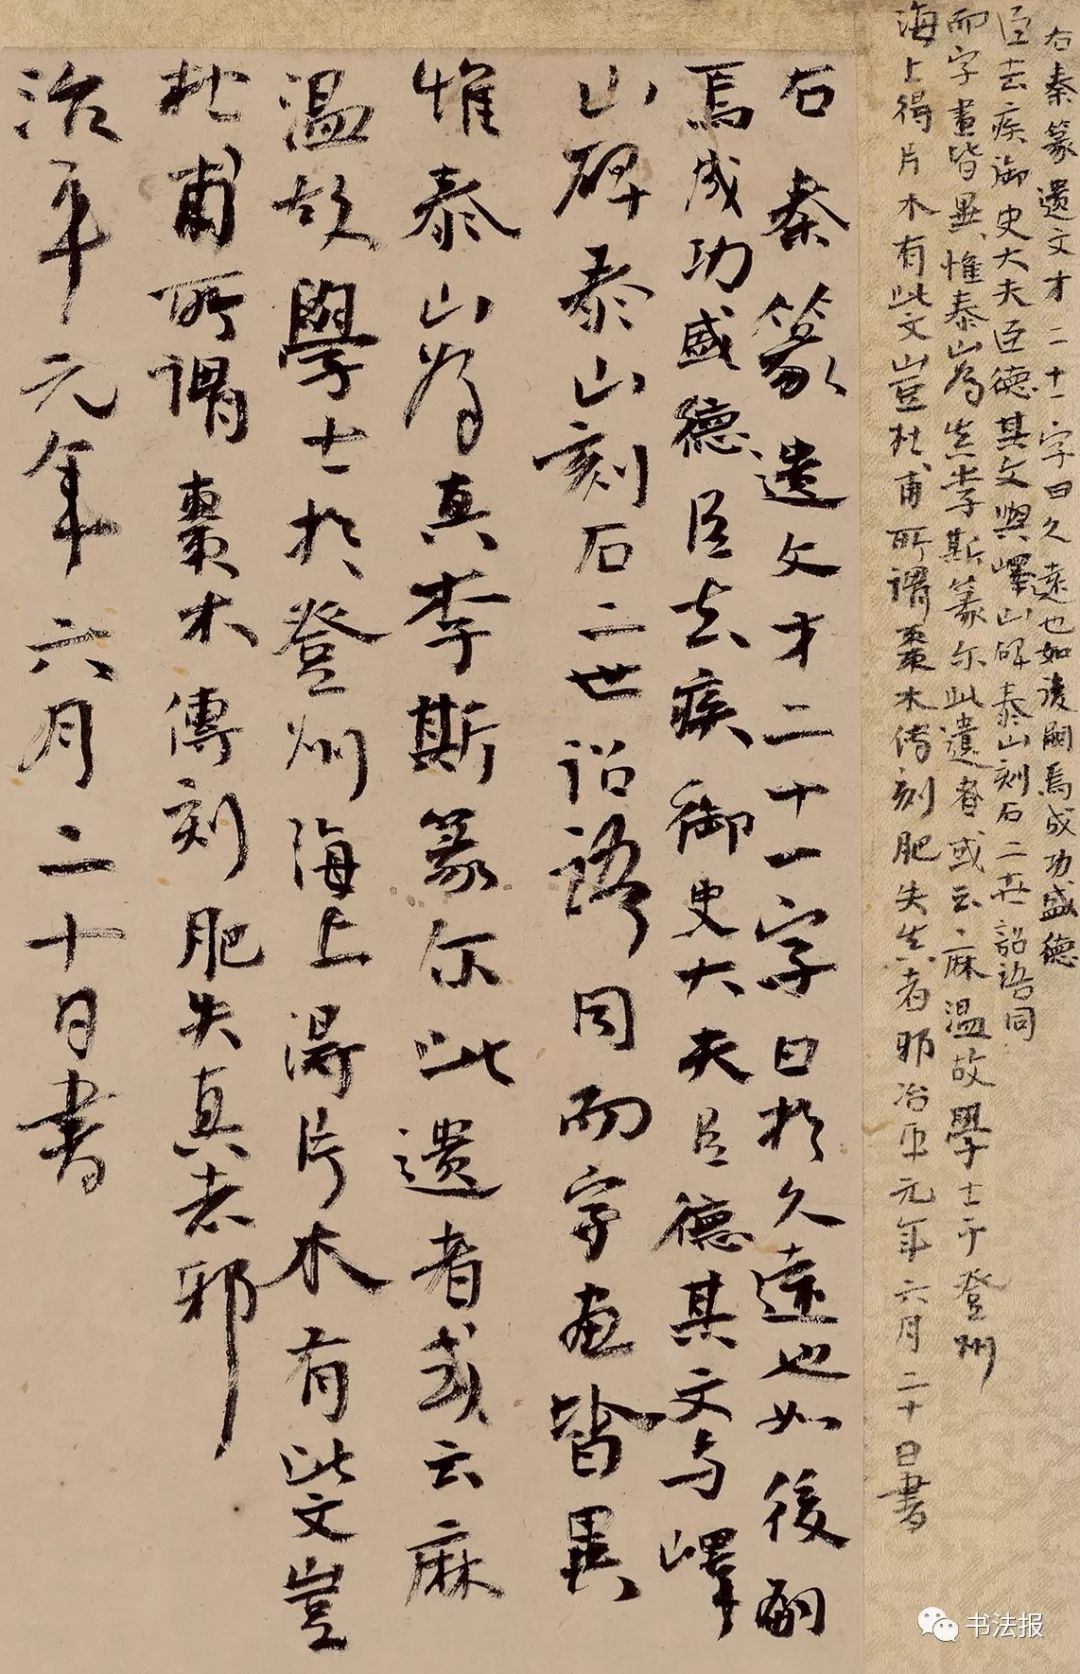 右秦篆遺文才二十一字曰久遠也如後嗣焉成功盛德
臣去疾御史大夫臣德其文與嶧山碑泰山刻石二世詔語同
而字畫皆異惟泰山為真李斯篆尔此遺者或云麻溫故學士于登州
海上得片木有此文豈杜甫所謂棗木傳刻肥失真者邪治平元年六月二十日書
右秦篆遺文才二十一字曰於久遠也如後嗣
焉成功盛德臣去疾御史大夫臣德其文与嶧
山碑泰山刻石二世詔語同而字畫皆異
惟泰山為真李斯篆尔此遺者或云麻
溫故學士於登州海上得片木有此文豈
杜甫所謂棗木傳刻肥失真者邪
治平元年六月二十日書
书法报